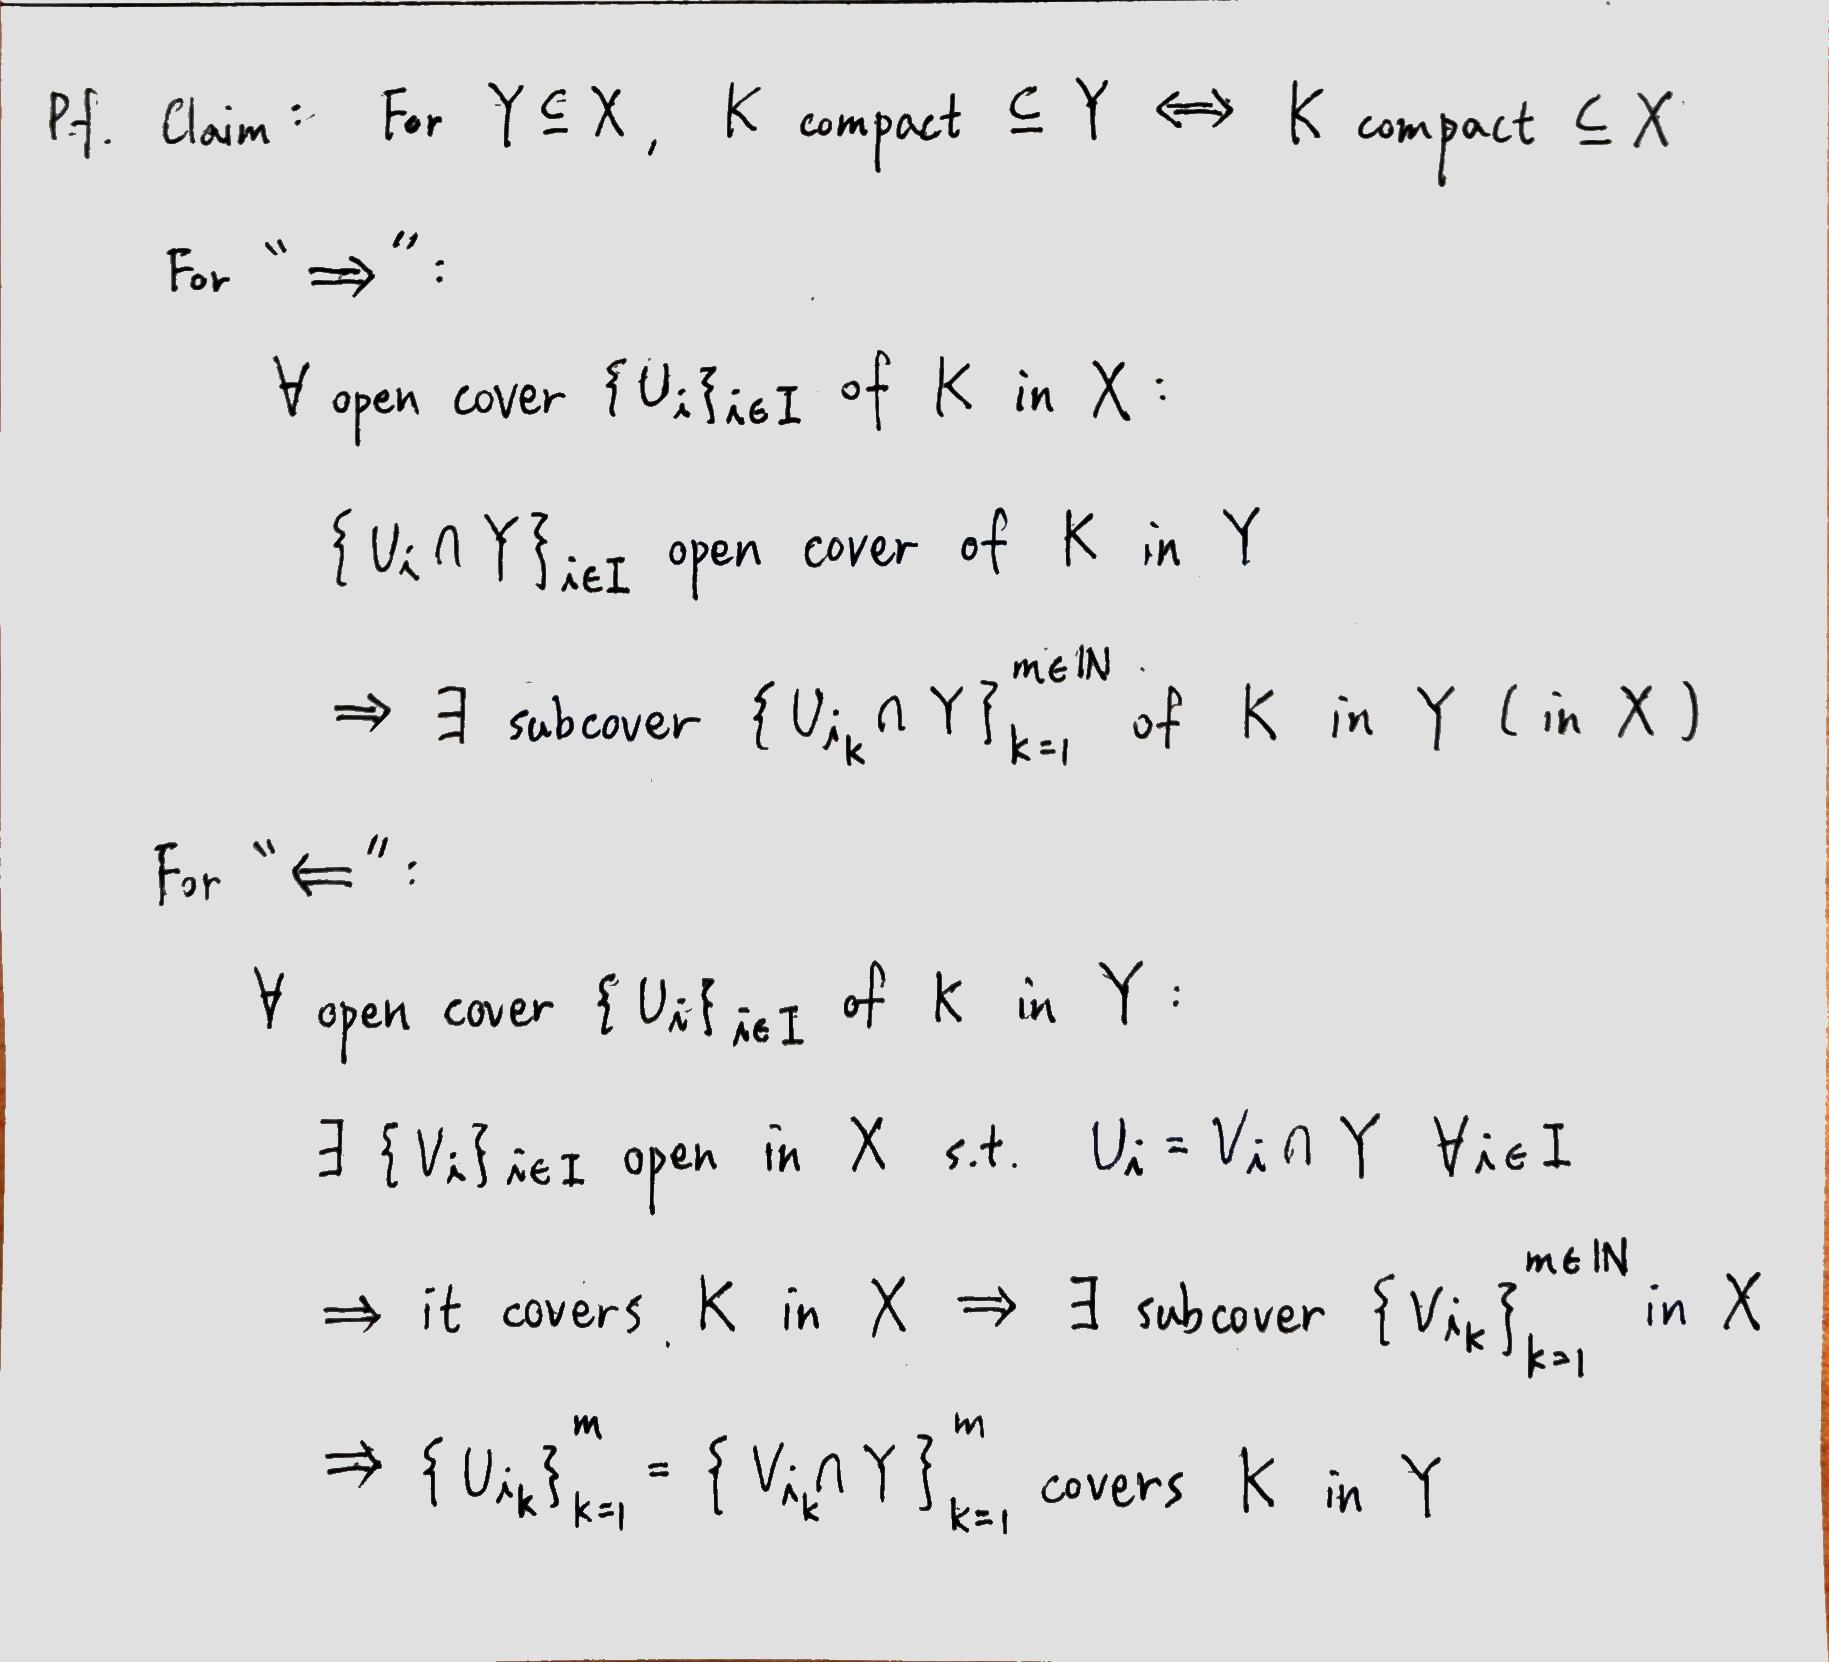 Pf. Claim: For Y ⊆ X, K compact ⊆ Y ⟺ K compact ⊆ X
For "⇒":
∀ open cover {U_i}_{i∈I} of K in X:
{U_i ∩ Y}_{i∈I} open cover of K in Y
⇒ ∃ subcover {U_{i_k} ∩ Y}_{k=1}^{m∈ℕ} of K in Y (in X)
For "⇐":
∀ open cover {U_i}_{i∈I} of K in Y:
∃ {V_i}_{i∈I} open in X s.t. U_i = V_i ∩ Y ∀i∈I
⇒ it covers K in X ⇒ ∃ subcover {V_{i_k}}_{k=1}^{m∈ℕ} in X
⇒ {U_{i_k}}_{k=1}^{m} = {V_{i_k} ∩ Y}_{k=1}^{m} covers K in Y